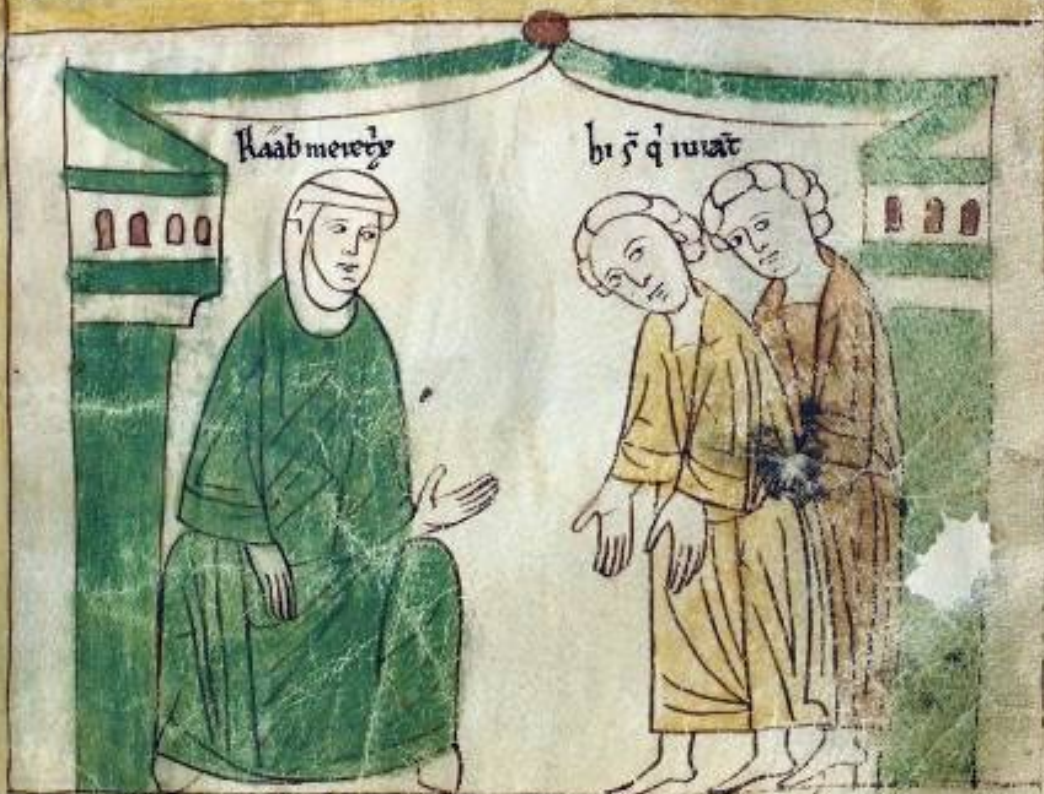 Raab meretͥx
hi s̄ qͥ iurāt